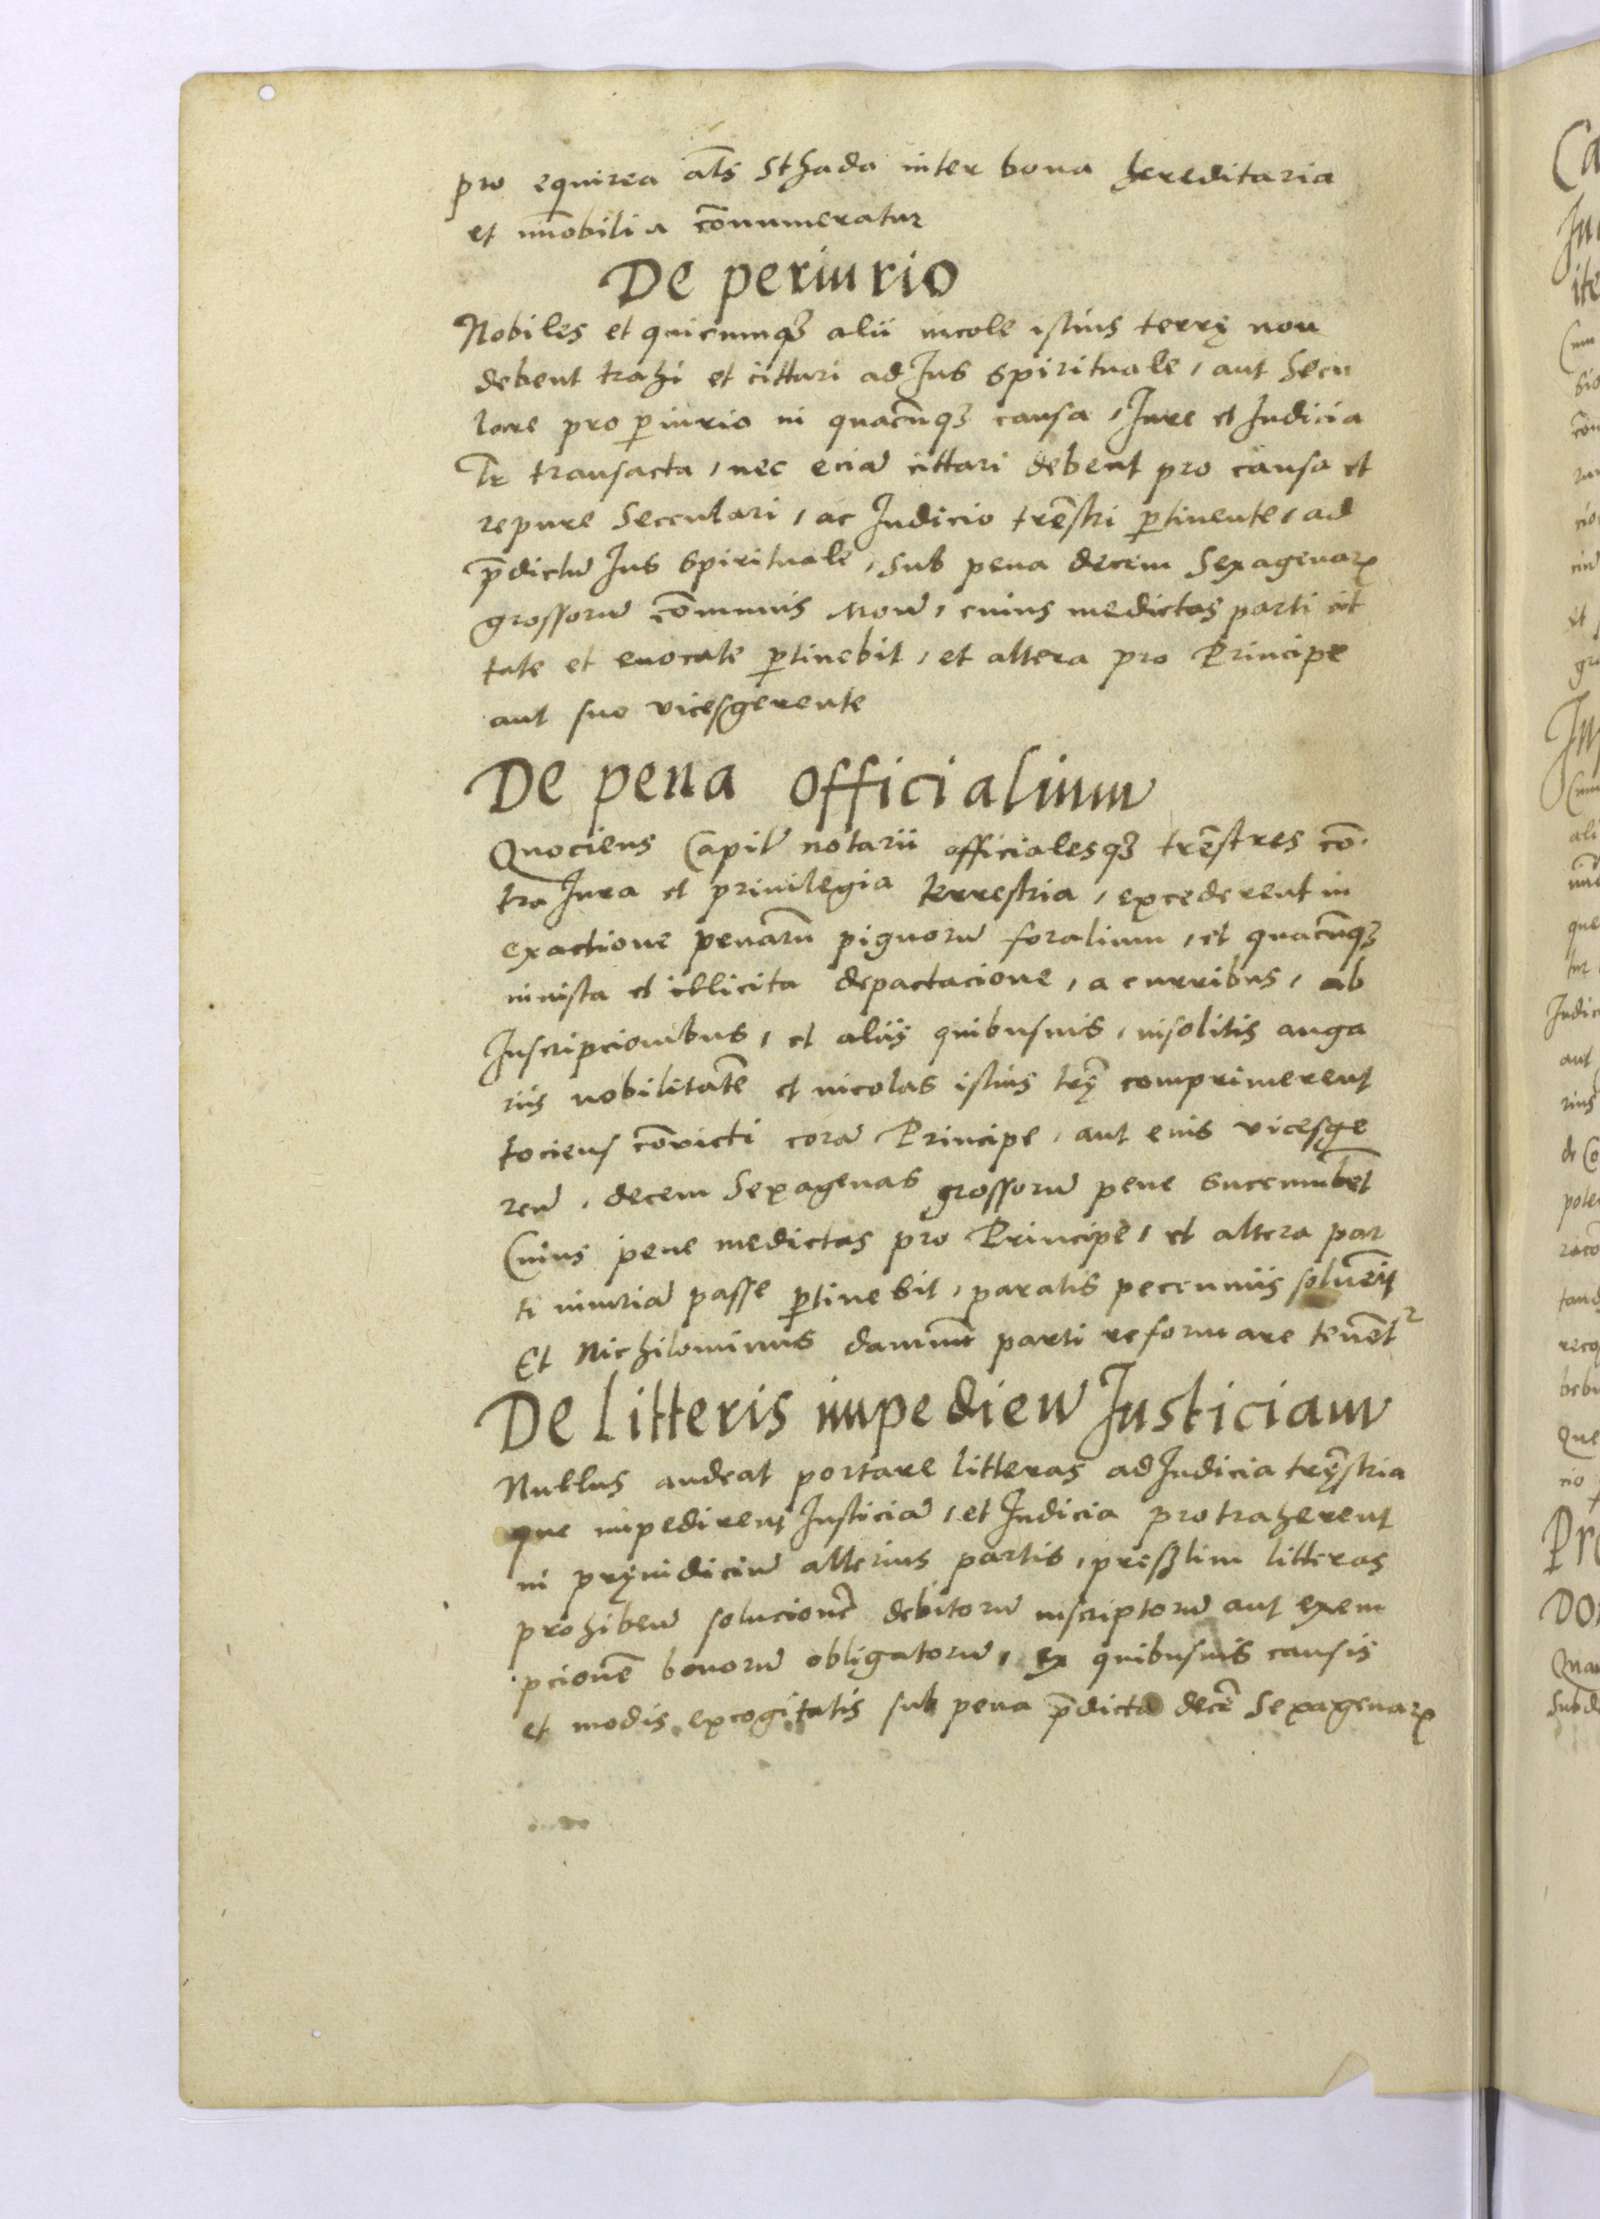 pro equirea al̄s Sthada inter bona hereditaria
et im̄obilia cōnumeratur
De periurio
Nobiles et quicumqꝫ alii incole istius terrę non
debent trahi et cittari ad Jus spirituale, aut Secu
lare pro ꝑiurio in quacūqꝫ causa, Jure et Judicia
lr̄ transacta, nec eciā cittari debent pro causa et
re pure Seculari, ac Judicio tr̄estri ꝑtinente, ad
p̄dictū Jus spirituale, sub pena decem Sexagenaꝝ
grossorū cōmunis Mon̄, cuius medietas parti cit
tate et euocate ꝑtinebit, et altera pro Principe
aut suo vicesgerente
De pena officialium
Quociens Capit̄ notarii officialesqꝫ tr̄estres cō
tra Jura et priuilegia terrestria, excederent in
exactione penarū pignorū foralium, et quacūqꝫ
iniusta et illicita depactacione, a curribus, ab
Inscripcionibus, et aliis quibusuis, insolitis anga
riis nobilitatē et incolas istius tr̄ę comprimerent
tociens cōuicti corā Principe, aut eius vicesge
ren̄, decem Sexagenas grossorū pene succumbēt
Cuius pene medietas pro Principe, et altera par
ti iniuriā passe ꝑtinebit, paratis pecuniis soluēt
Et Nichilominus damnū parti reformare tenēt²
De litteris impedien̄ Justiciam
Nullus audeat portare litteras ad Judicia tr̄ęstria
que impedirent Justiciā, et Judicia protraherent
in pręiudiciū alterius partis, presertim litteras
prohiben̄ solucionē debitorū inscriptorū aut exem
pcionē bonorū obligatorū, ex quibusuis causis
et modis excogitatis sub pena p̄dicta decē Sexagenaꝝ